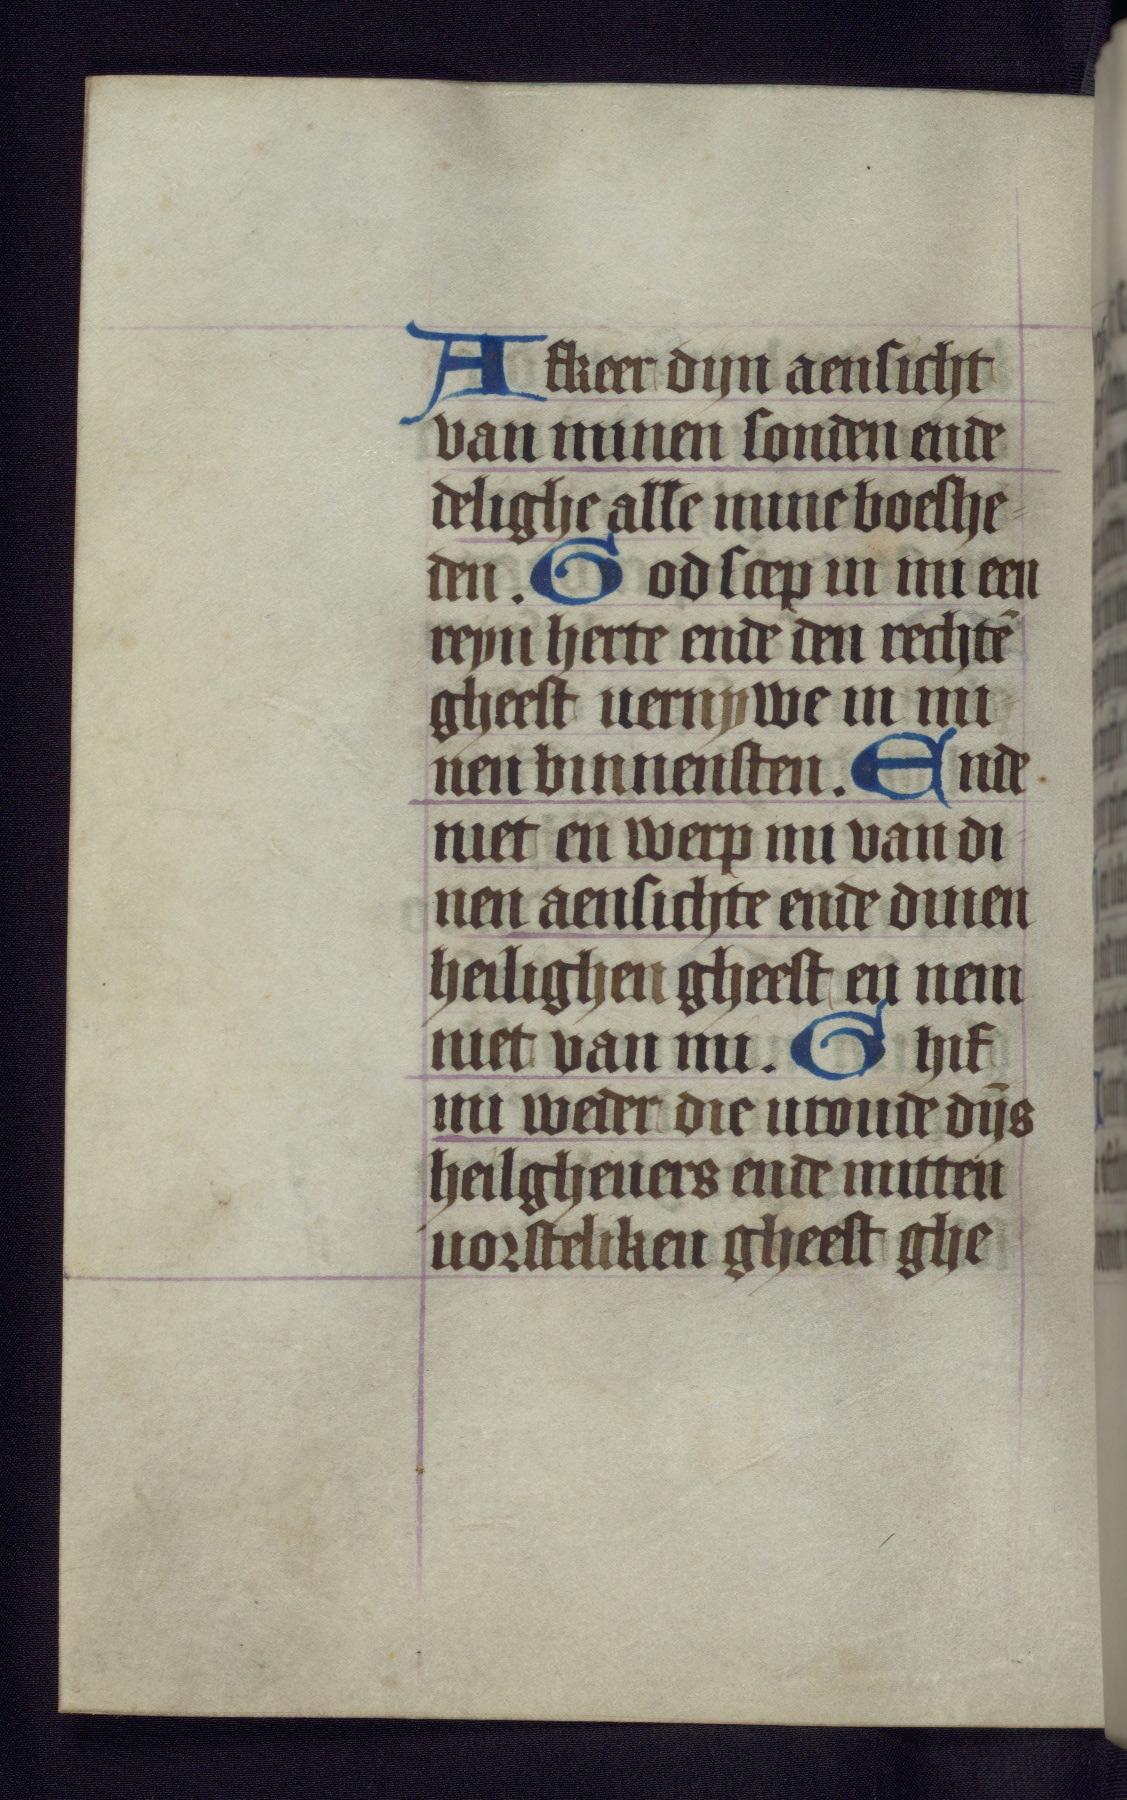 Afkeer dijn aensicht
van minen sonden ende
delighe alle mine boeshe-
den. God scep in mi een
reyn herte ende den rechtē
gheest uernywe in mi
nen binnensten. Ende
niet en werp mi van di-
nen aensichte ende dinen
heilighen gheest en nem
niet van mi. Ghif
mi weder die uroude dijs
heilgheuers ende mitten
uorsteliken gheest ghe